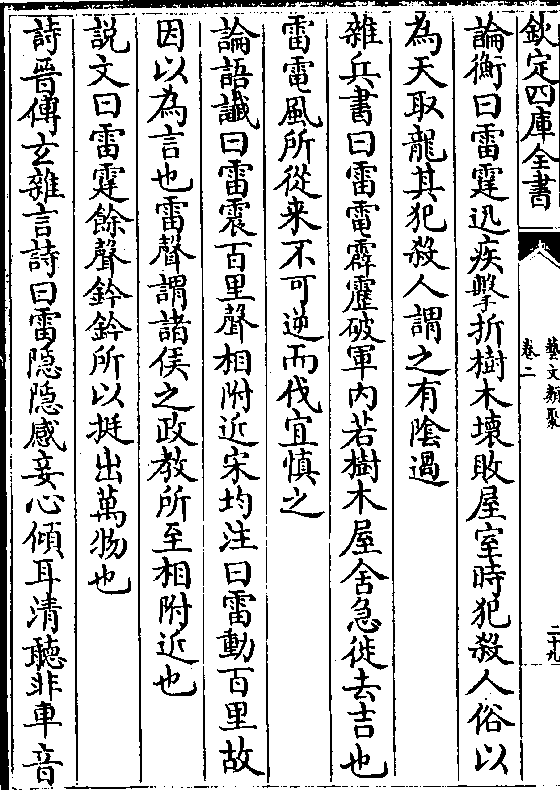 欽定四庫全書
藝文類聚
卷二
二十九
論衡曰雷霆迅疾擊折樹木壞敗屋室時犯殺人俗以
為天取龍其犯殺人謂之有陰過
雜兵書曰雷電霹靂破軍內若樹木屋舍急徙去吉也
雷電風所從来不可逆而伐宜慎之
論語讖曰雷震百里聲相附近宋均注曰雷動百里故
因以為言也雷聲謂諸侯之政教所至相附近也
説文曰雷霆餘聲鈴鈴所以挺出萬物也
詩晉傅玄雜言詩曰雷隠隠感妾心傾耳清聽非車音